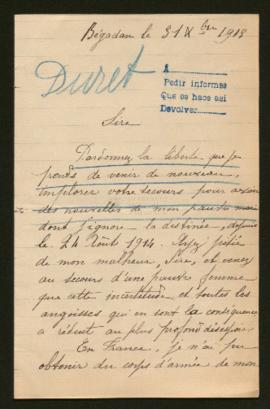 Bégadan le 31 Xbre 1918
Duret
A
Pedir informes
Que se hace asi
Devolver
Sire
Pardonnez la liberté que je
prends de venir de nouveau,
implorer votre secours pour avoir
des nouvelles de mon pauvre mari
dont j'ignore la destinée, depuis
le 24 Août 1914. Ayez pitié
de mon malheur, Sire, et venez
au secours d'une pauvre femme
que cette incertitude et toutes les
angoisses qui en sont la conséquence
a réduit au plus profond désespoir.
En France, je n'ai pu
obtenir du corps d'armée de mon